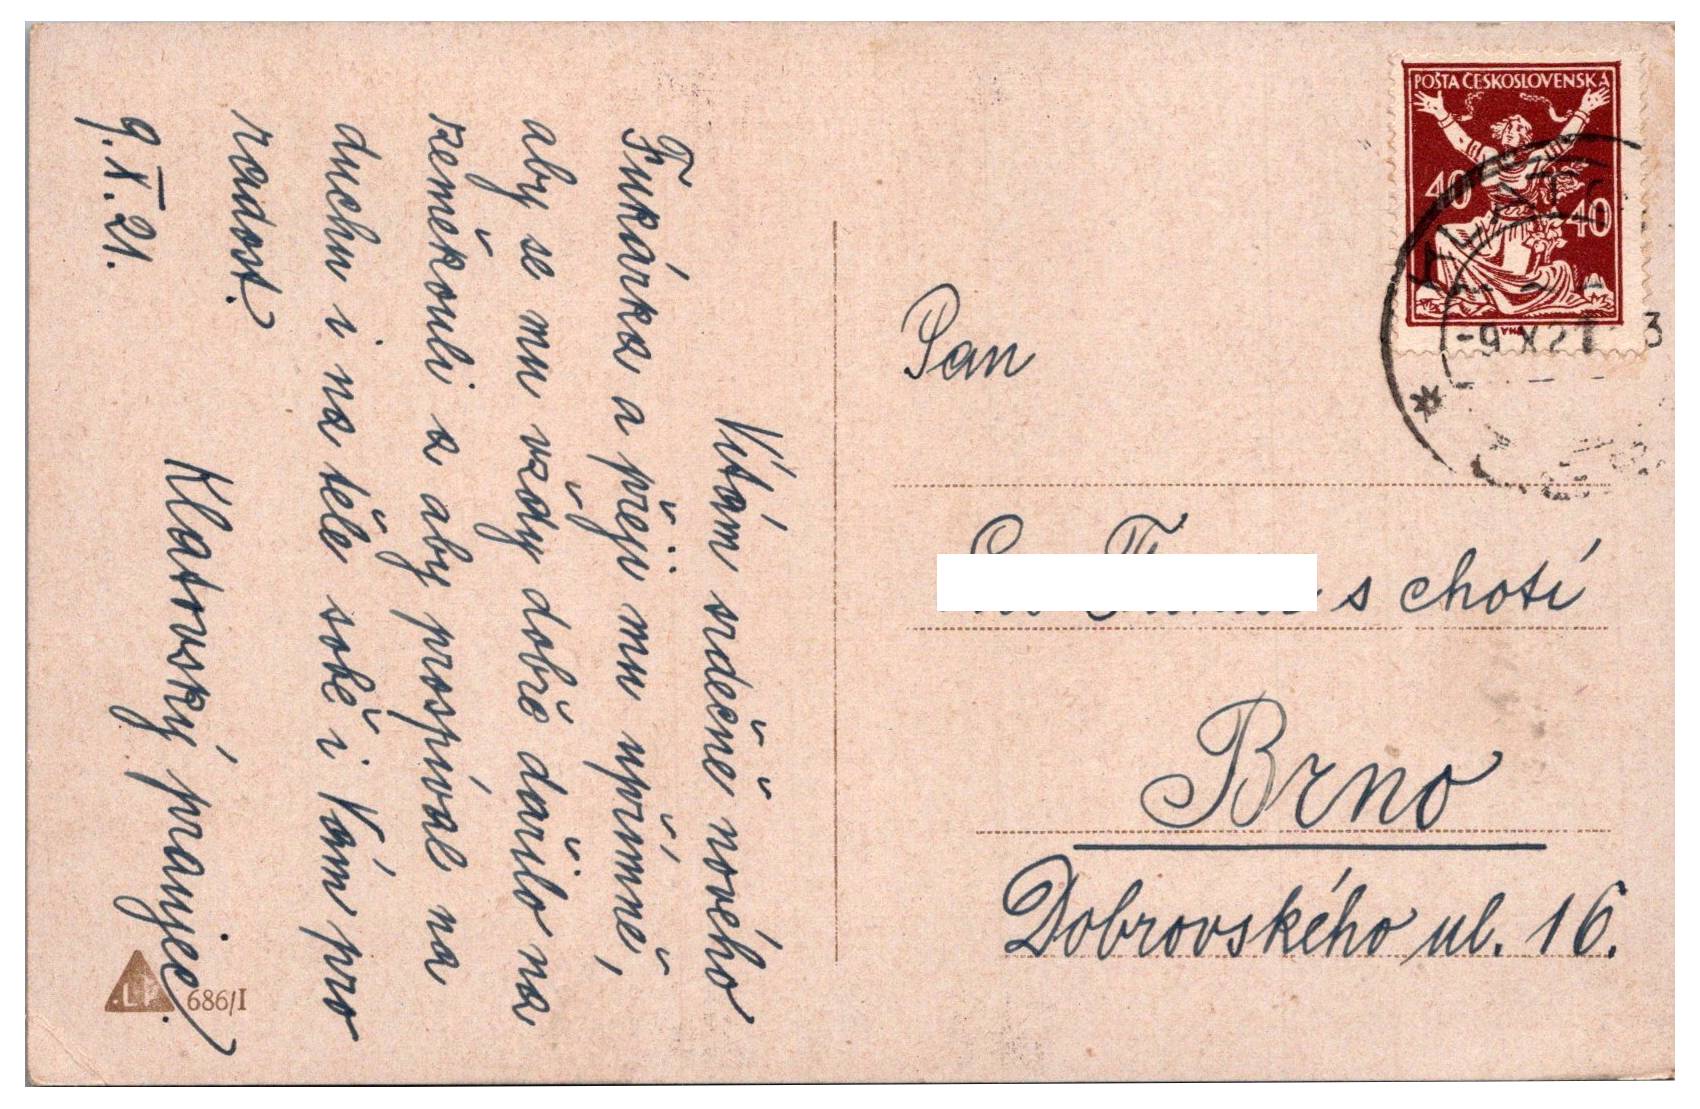 Vítám srdečně nového
Fukárka a přeji mu upřímně,
aby se mu vždy dobře dařilo na
zeměkouli a aby prospíval na
duchu i na těle sobě i Vám pro
radost.
9.X.21.
Klatovský pranjec.
POŠTA ČESKOSLOVENSKÁ
40
40
-9.X.21
3
Pan
s chotí
Brno
Dobrovského ul. 16.
L P
686/I